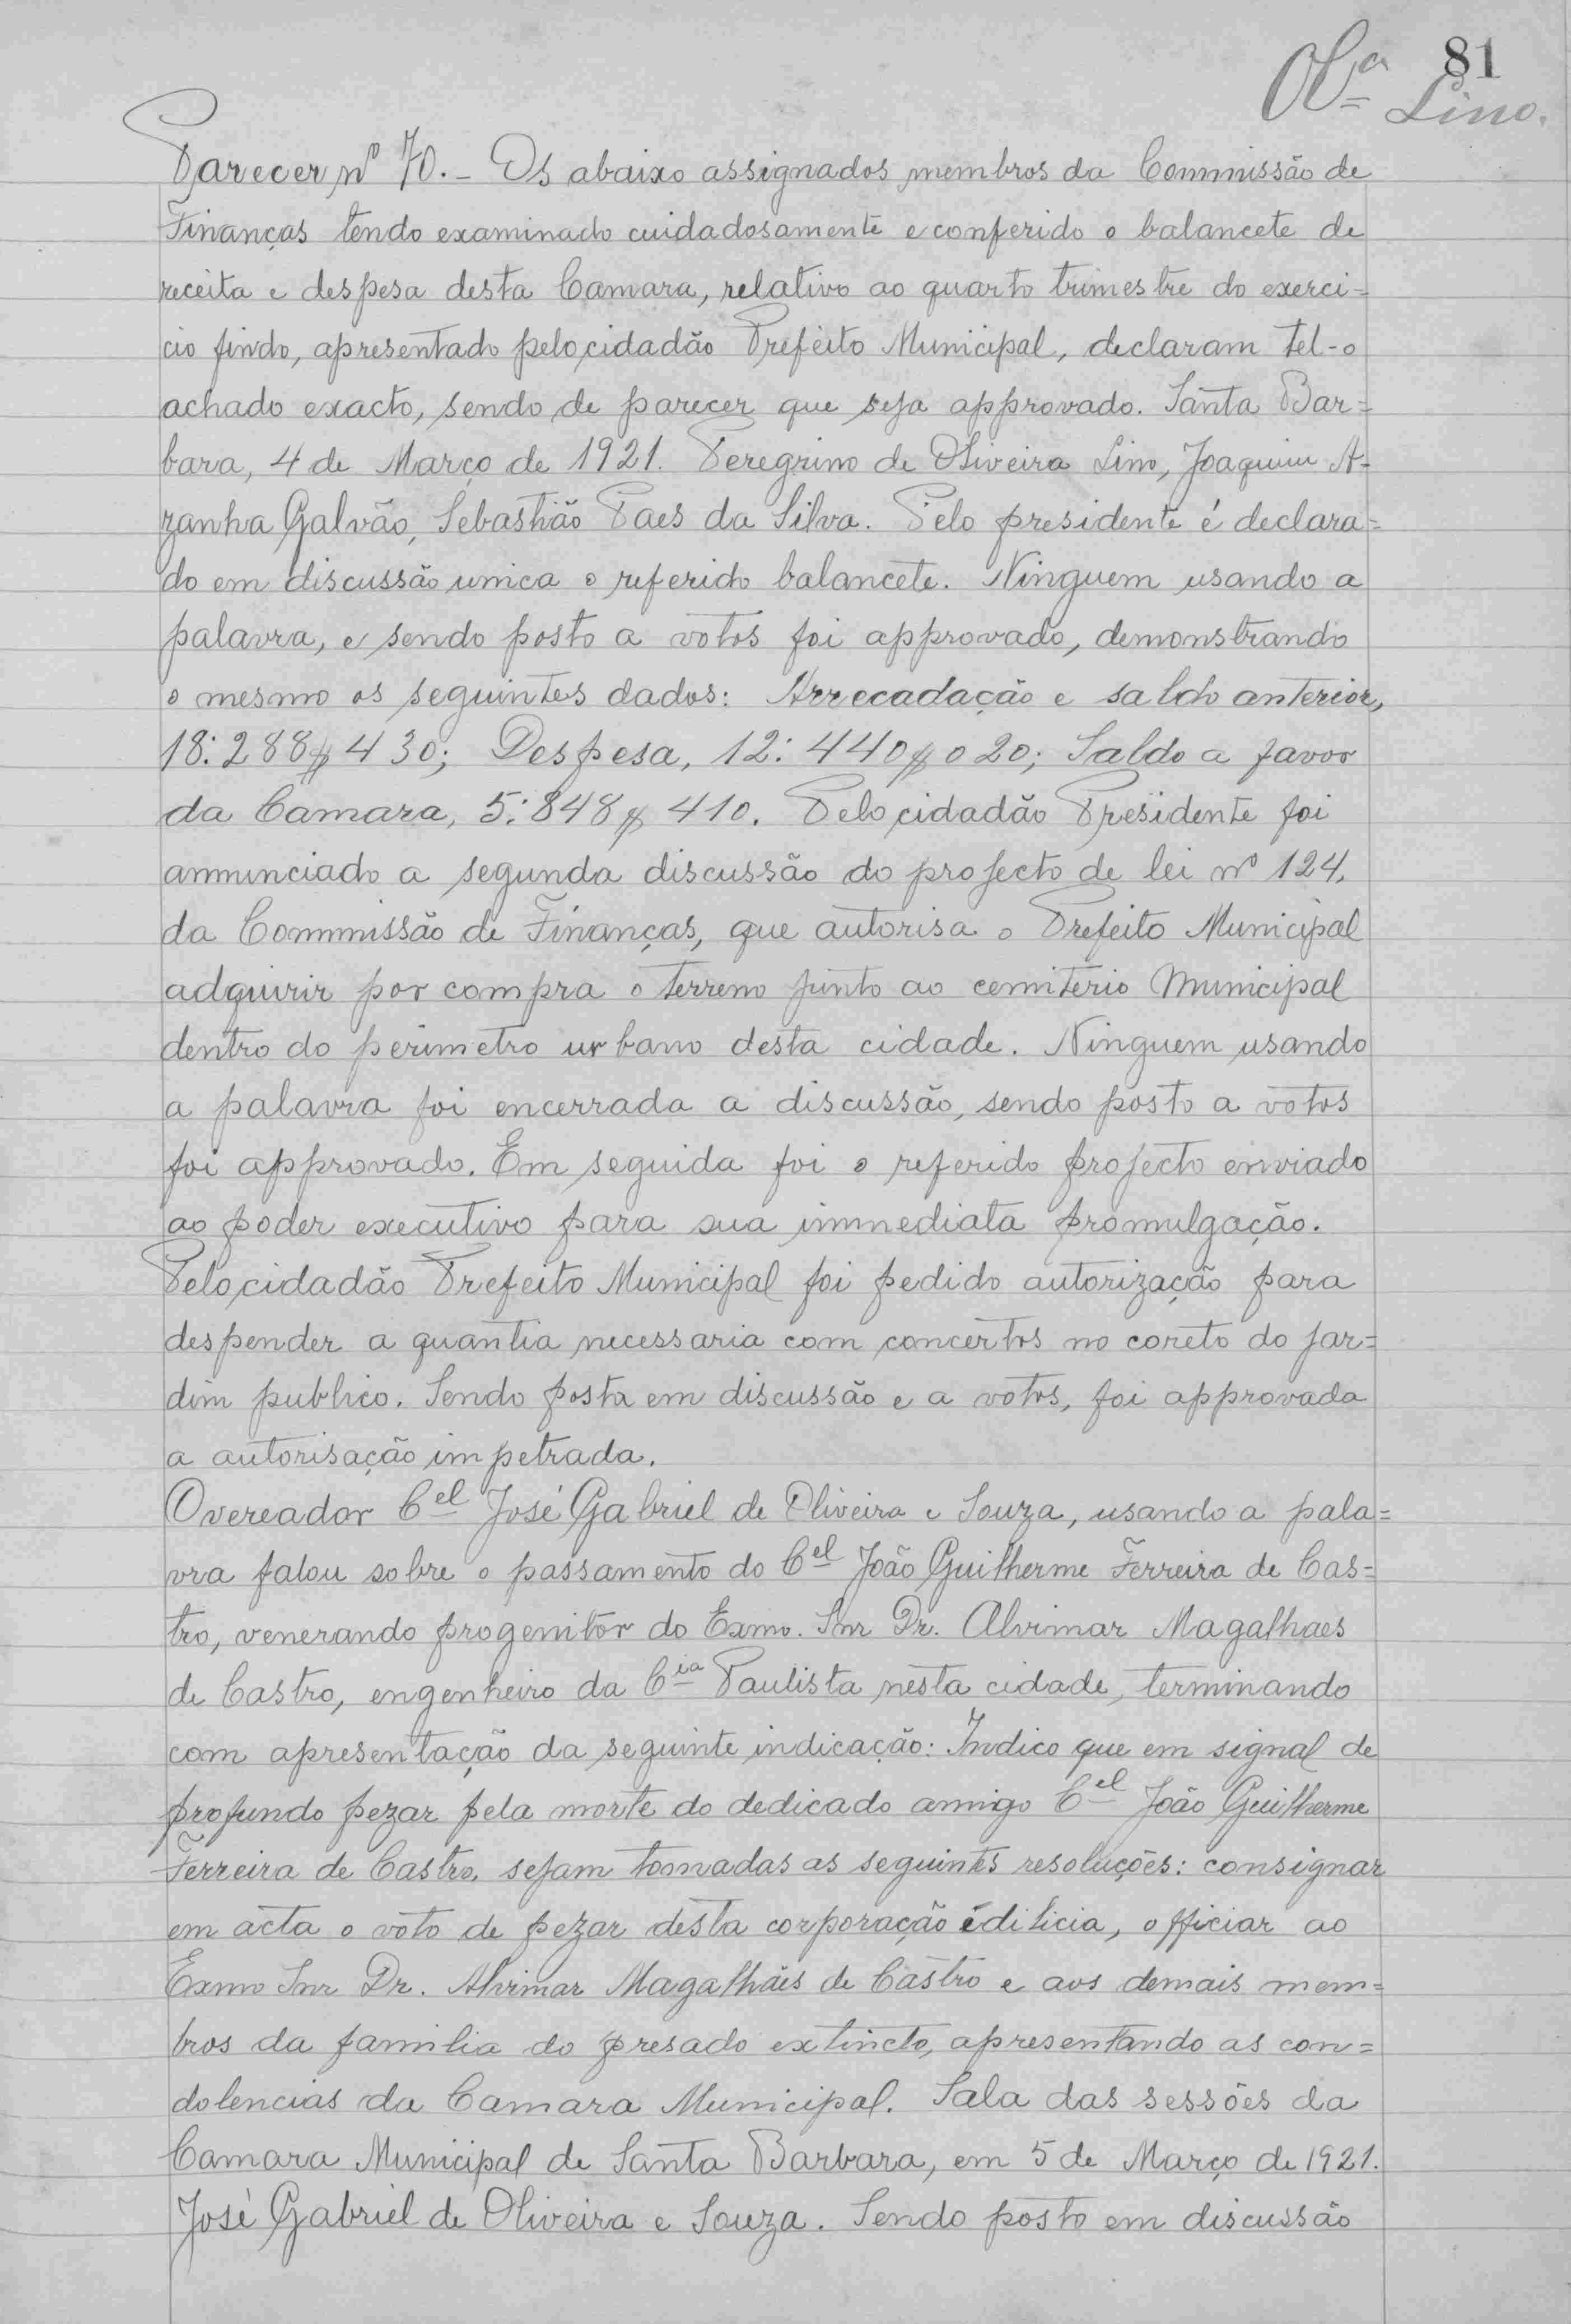 81
Olª Lino.
Parecer nº 70. - Os abaixo assignados membros da Commissão de
Finanças tendo examinado cuidadosamente e conferido o balancete de
receita e despesa desta Camara, relativo ao quarto trimestre do exerci=
cio findo, apresentado pelo cidadão Prefeito Municipal, declaram tel-o
achado exacto, sendo de parecer que seja approvado. Santa Bar=
bara, 4 de Março de 1921. Peregrino de Oliveira Lino, Joaquim A-
zanha Galvão, Sebastião Paes da Silva. Pelo presidente é declara=
do em discussão unica o referido balancete. Ninguem usando a
palavra, e sendo posto a votos foi approvado, demonstrando
o mesmo os seguintes dados: Arrecadação e saldo anterior,
18:288$430; Despesa, 12:440$020; Saldo a favor
da Camara, 5:848$410. Pelo cidadão Presidente foi
annunciado a segunda discussão do projecto de lei nº 124,
da Commissão de Finanças, que autorisa o Prefeito Municipal
adquirir por compra o terreno junto ao cemiterio Municipal
dentro do perimetro urbano desta cidade. Ninguem usando
a palavra foi encerrada a discussão, sendo posto a votos
foi approvado. Em seguida foi o referido projecto enviado
ao poder executivo para sua immediata promulgação.
Pelo cidadão Prefeito Municipal foi pedido autorização para
despender a quantia necessaria com concertos no coreto do jar=
dim publico. Sendo posta em discussão e a votos, foi approvada
a autorisação impetrada.
O vereador Cel José Gabriel de Oliveira e Souza, usando a pala=
vra falou sobre o passamento do Cel João Guilherme Ferreira de Cas=
tro, venerando progenitor do Exmo. Snr Dr. Alvimar Magalhaes
de Castro, engenheiro da Cia Paulista nesta cidade, terminando
com apresentação da seguinte indicação: Indico que em signal de
profundo pezar pela morte do dedicado amigo Cel João Guilherme
Ferreira de Castro, sejam tomadas as seguintes resoluções: consignar
em acta o voto de pezar desta corporação édilicia, officiar ao
Exmo Snr Dr. Alvimar Magalhães de Castro e aos demais mem=
bros da familia do presado extincto, apresentando as con=
dolencias da Camara Municipal. Sala das sessões da
Camara Municipal de Santa Barbara, em 5 de Março de 1921.
José Gabriel de Oliveira e Souza. Sendo posto em discussão